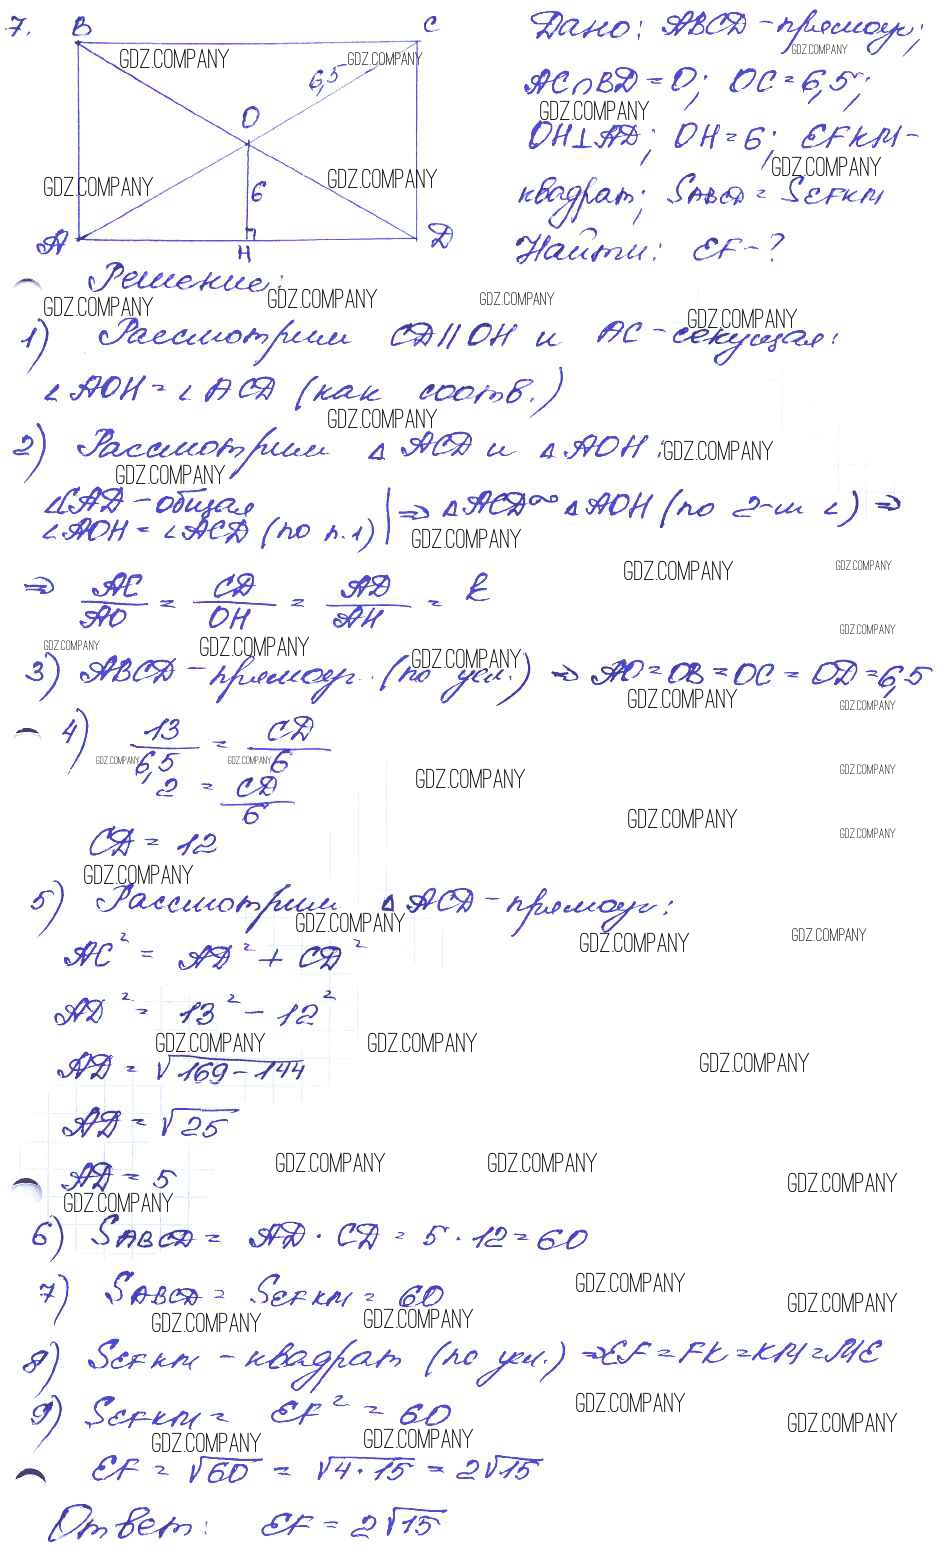 7.
B
C
6,5
O
6
A
H
D
Дано: ABCD - прямоуг;
AC∩BD = O; OC = 6,5;
OH⊥AD; OH = 6; EFKM -
квадрат; SABCD = SEFKM
Найти: EF - ?
Решение:
1) Рассмотрим CD∥OH и AC - секущая:
∠AOH = ∠ACD (как соотв.)
2) Рассмотрим △ACD и △AOH:
∠CAD - общая
∠AOH = ∠ACD (по п.1) | ⇒ △ACD ∞ △AOH (по 2-м ∠) ⇒
⇒ AC/AO = CD/OH = AD/AH = k
3) ABCD - прямоуг. (по усл.) ⇒ AO = OB = OC = OD = 6,5
4) 13/6,5 = CD/6
2 = CD/6
CD = 12
5) Рассмотрим △ACD - прямоуг:
AC² = AD² + CD²
AD² = 13² - 12²
AD = √169 - 144
AD = √25
AD = 5
6) SABCD = AD · CD = 5 · 12 = 60
7) SABCD = SEFKM = 60
8) SEFKM - квадрат (по усл.) ⇒ EF = FK = KM = ME
9) SEFKM = EF² = 60
EF = √60 = √4·15 = 2√15
Ответ: EF = 2√15
GDZ.COMPANY